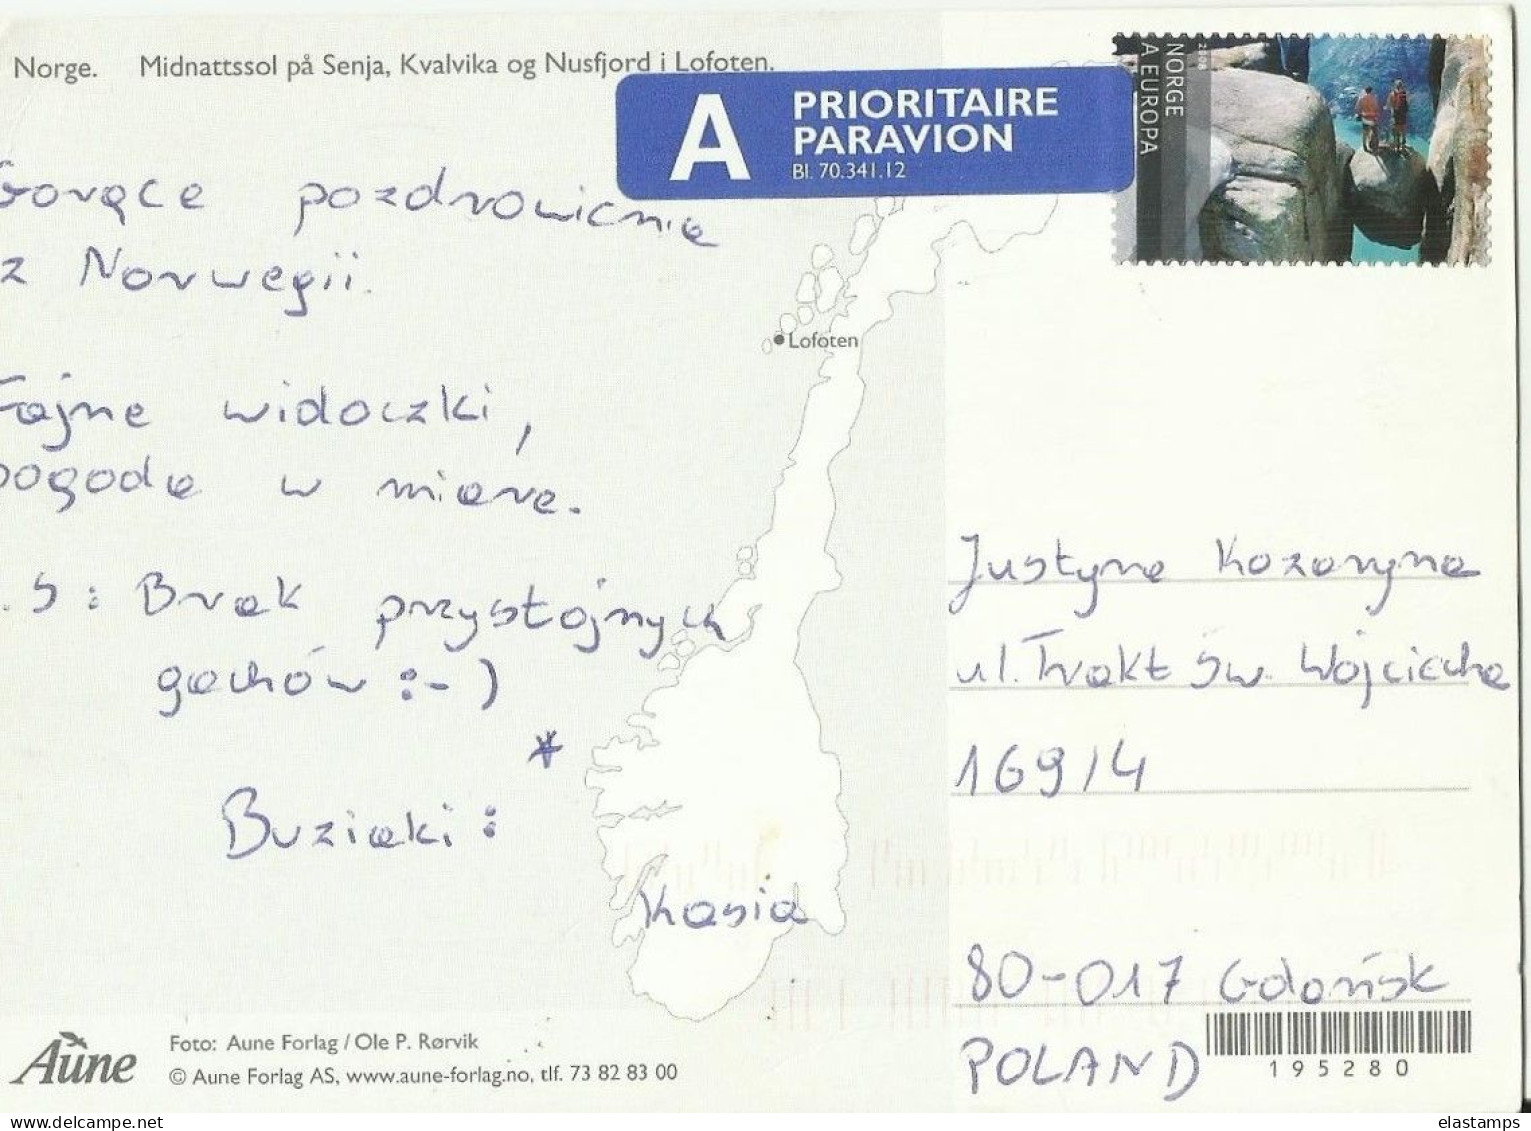 Norge. Midnattssol på Senja, Kvalvika og Nusfjord i Lofoten.
A PRIORITAIRE
PARAVION
Bl. 70.341.12
NORGE
A EUROPA
Gorące pozdrowienia
z Norwegii.
Lofoten
Fajne widoczki,
pogoda w miarę.
.S: Brak przystojnych
gachów :-)
*
Buziaki:
Kasia
Justyna Kozaryna
ul. Trakt Św. Wojciecha
169/4
80-017 Gdańsk
POLAND
195280
Aune
Foto: Aune Forlag / Ole P. Rørvik
© Aune Forlag AS, www.aune-forlag.no, tlf. 73 82 83 00
elastamps